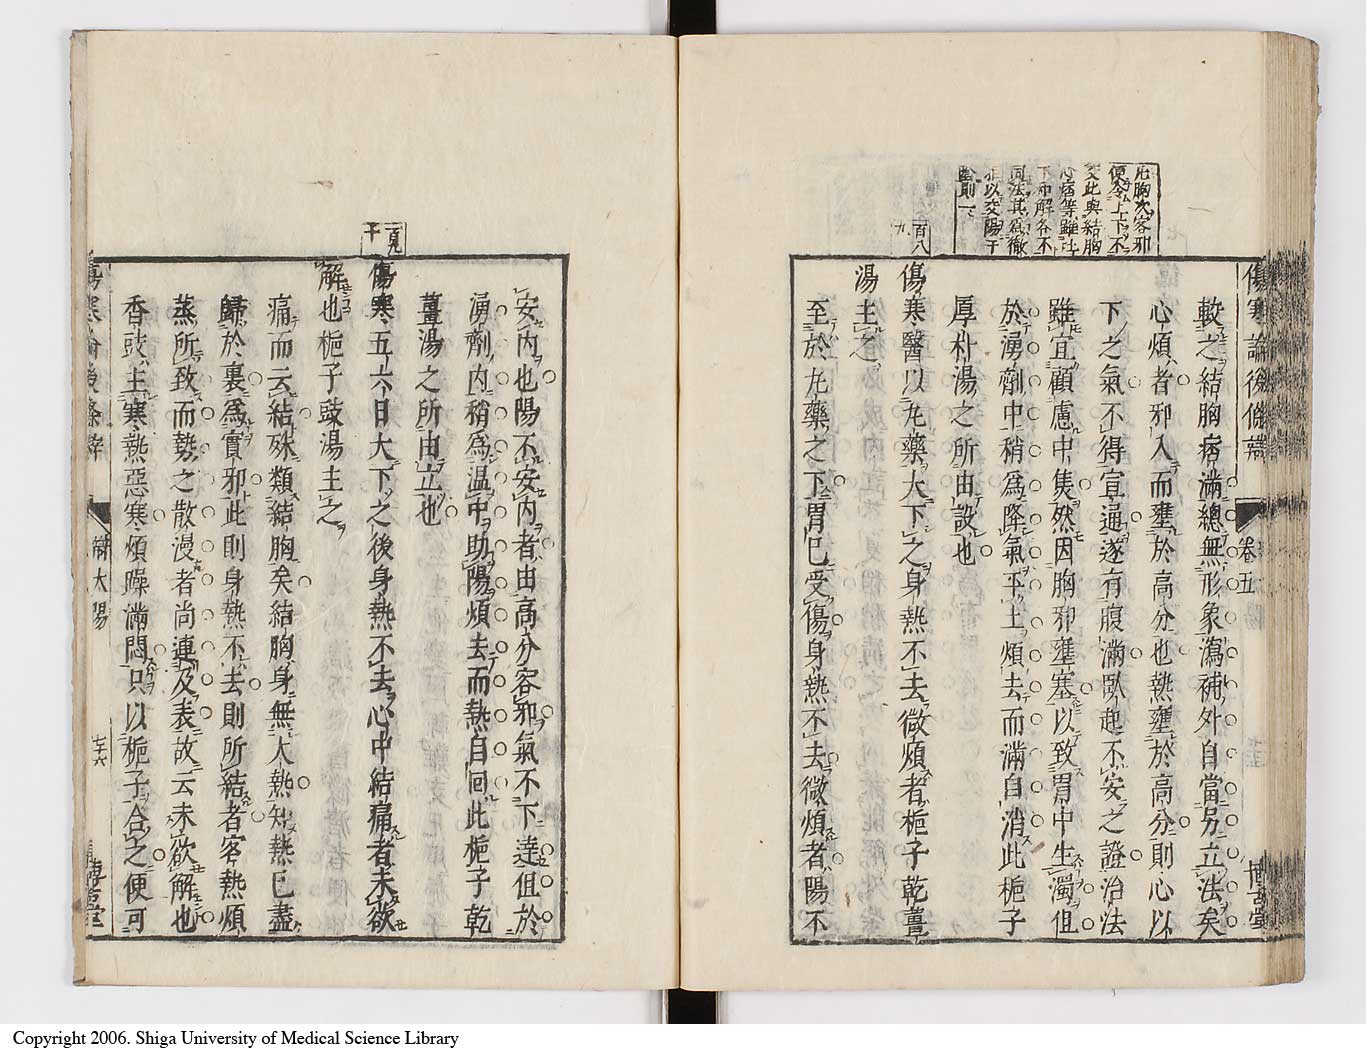 傷寒論後條辨
卷五
博古堂
凡胸次客邪
便令上上下不
交此與結胸
心痞等雖
下而解各不
同法其爲徹
以交陽于
陰則一
較之結胸痞滿總無形象瀉補外自當另立法矣
心煩者邪入而壅於高分也熱壅於高分則心以
下之氣不得宣通遂有腹滿臥起不安之證治法
雖宜顧慮中焦然因胸邪壅塞以致胃中生濁但
於湧劑中稍爲降氣平土煩去而滿自消此梔子
厚朴湯之所由設也
百八
九
傷寒醫以丸藥大下之身熱不去微煩者梔子乾薑
湯主之
至於丸藥之下胃已受傷身熱不去微煩者陽不
安內也陽不安內者由高分客邪氣不下達但於
湧劑內稍爲溫中助陽煩去而熱自回此梔子乾
薑湯之所由立也
傷寒五六日大下之後身熱不去心中結痛者未欲
解也梔子豉湯主之
痛而云結殊類結胸矣結胸身無大熱知熱已盡
歸於裏爲實邪此則身熱不去則所結者客熱煩
蒸所致而勢之散漫者尚連及表故云未欲解也
香豉主寒熱惡寒煩躁滿悶只以梔子合之便可
傷寒論後條辨
辨太陽
博古堂
Copyright 2006. Shiga University of Medical Science Library